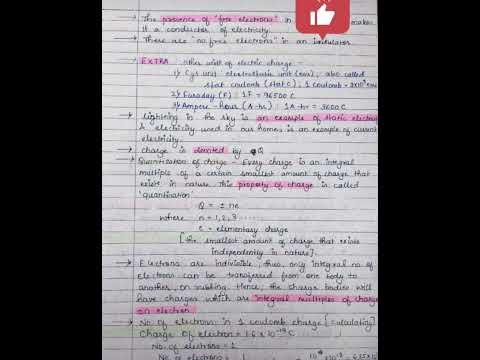 → The presence of "free electrons" in makes
it a conductor of electricity.
→ There are "no free electrons" in an insulator.
→ EXTRA other unit of electric charge -
1) Cgs unit electrostatic unit (esu), also called
stat coulomb (stat C), 1 coulomb = 3x10⁹
2) Faraday (F) : 1F = 96500 C
3) Ampere-hour (A-hr) : 1A-hr = 3600C
→ Lightning in the sky is an example of static
& electricity used in our homes is an example of current
electricity.
→ charge is denoted by Q
→ Quantisation of charge - Every charge is an integral
multiple of a certain smallest amount of charge that
exists in nature. This property of charge is called
'quantisation'
Q = ± ne
where n = 1, 2, 3
e = elementary charge
[the smallest amount of charge that exists
independently in nature]
→ Electrons are indivisible, thus, only integral no. of
electrons can be transferred from one body to
another, on rubbing. Hence, the charge bodies will
have charges which are integral multiples of charge
on electron.
→ No. of electrons in 1 coulomb charge [calculating]
Charge on electron = 1.6 x 10⁻¹⁹ C
No. of electrons = 1
No. of electrons =